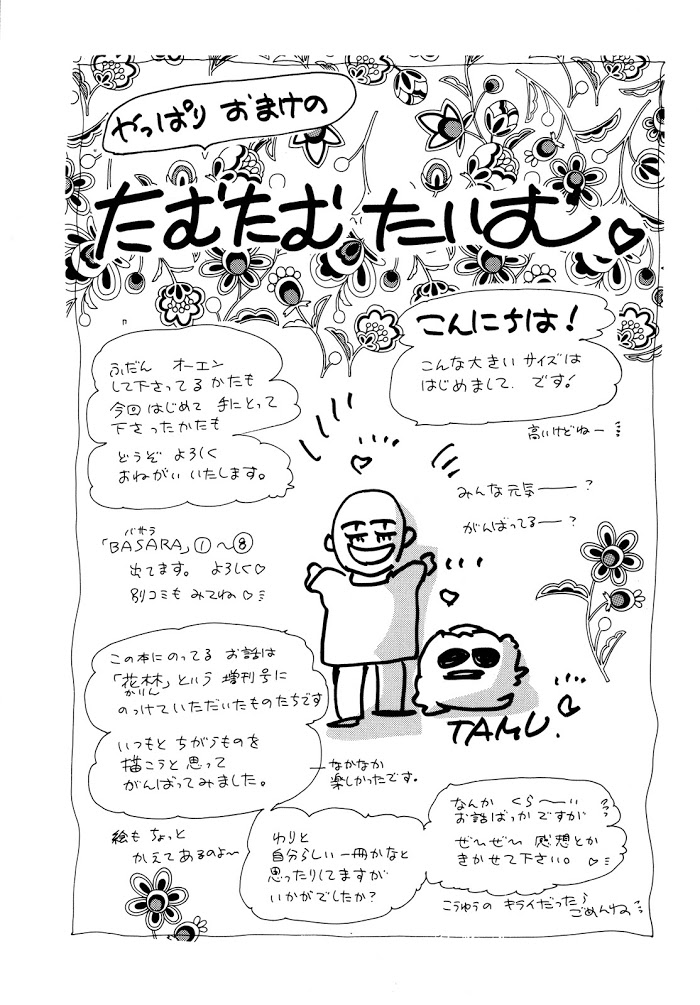 やっぱり おまけの
たむたむ たいむ♡
こんにちは!
こんな大きいサイズは
はじめまして. です!
高いけどねー
ふだん オーエン
して下さってるかたも
今回はじめて 手にとって
下さったかたも
どうぞ よろしく
おねがい いたします。
みんな元気──?
がんばってるー?
バサラ
「BASARA」①〜⑧
出てます。 よろしく♡
別コミも みてね♡
この本にのってる お話は
「花林」という 増刊号に
かりん
のっけていただいたものたちです
いつもと ちがうものを
描こうと思って
がんばってみました。
なかなか
楽しかったです。
TAMU.
絵も ちょっと
かえてあるのよ〜
わりと
自分らしい一冊かなと
思ったりしてますが
いかがでしたか?
なんか くら〜い
お話ばっかですが
ぜ〜ひぜ〜ひ 感想とか
きかせて下さい。♡
こうゆうの キライだったら
ごめんね